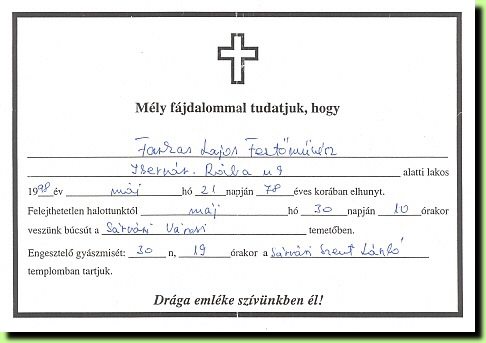 Mély fájdalommal tudatjuk, hogy
Farkas Lajos Festőművész
Rába u 9 alatti lakos
1998 év máj hó 21 napján 78 éves korában elhunyt.
Felejthetetlen halottunktól máj hó 30 napján 10 órakor
veszünk búcsút a Sárvári Városi temetőben.
Engesztelő gyászmisét: 30 n, 19 órakor a Sárvári Szent László
templomban tartjuk.
Drága emléke szívünkben él!